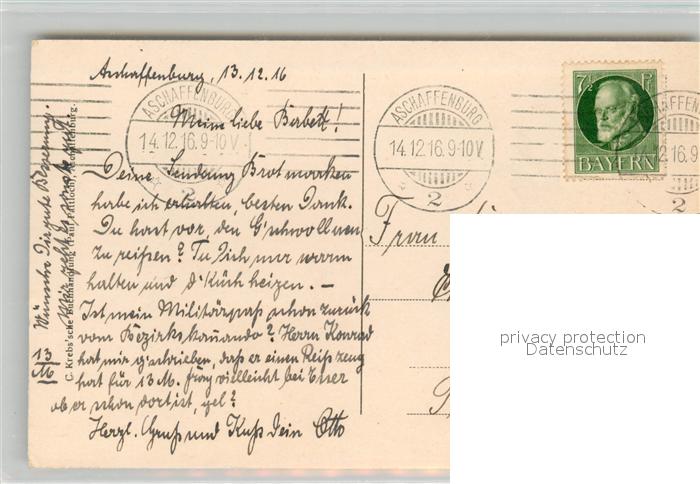 Aschaffenburg, 13.12.16
Meine liebe Berbett!
Deine Sendung Brotmarken
habe ich erhalten, besten Dank.
Du hast vor, den G'schwollnen
zu reißen? Tu Dich nur warm
halten und d'Küch heizen. —
Ist mein Militärpaß schon zurück
vom Bezirkskomando? Herrn Konrad
hat mir g'schrieben, daß er einen Reißzeug
hat für 13 M. frag vielleicht bei Euer
ob er schon dort ist, gel?
Herzl. Gruß und Kuß Dein Otto
Wünsche Dir gute Besserung.
13/16
C. Krebs'sche Buchhandlung Aschaffenburg.
ASCHAFFENBURG
14.12.16.9-10V.
2
ASCHAFFENBURG
14.12.16.9-10V.
2
7½ P
BAYERN
2.16.9
2
Frau
privacy protection
Datenschutz